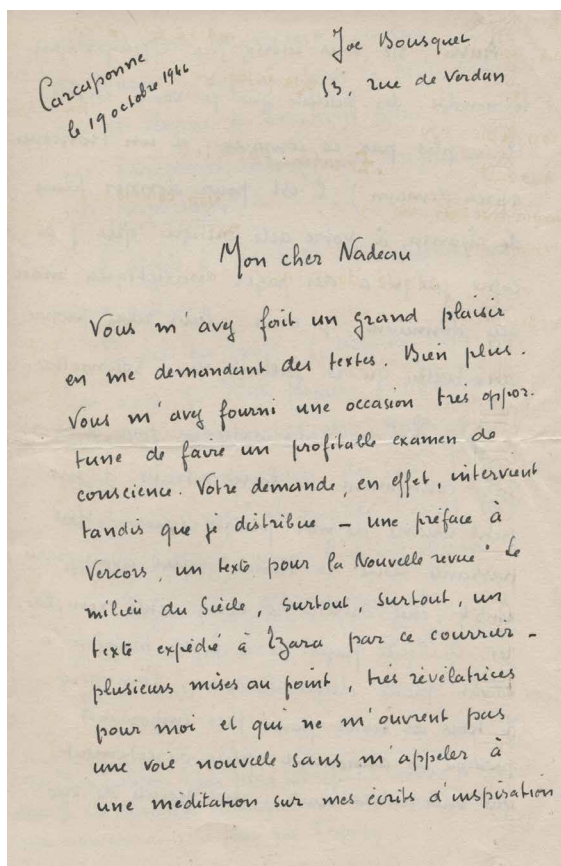 Carcassonne
le 19 octobre 1946
Joe Bousquet
53, rue de Verdun
Mon cher Nadeau
Vous m'avez fait un grand plaisir
en me demandant des textes. Bien plus.
Vous m'avez fourni une occasion très oppor-
tune de faire un profitable examen de
conscience. Votre demande, en effet, intervient
tandis que je distribue – une préface à
Vercors, un texte pour la Nouvelle revue "Le
milieu du Siècle, surtout, surtout, un
texte expédié à Tzara par ce courrier –
plusieurs mises au point, très révélatrices
pour moi et qui ne m'ouvrent pas
une voie nouvelle sans m'appeler à
une méditation sur mes écrits d'inspiration